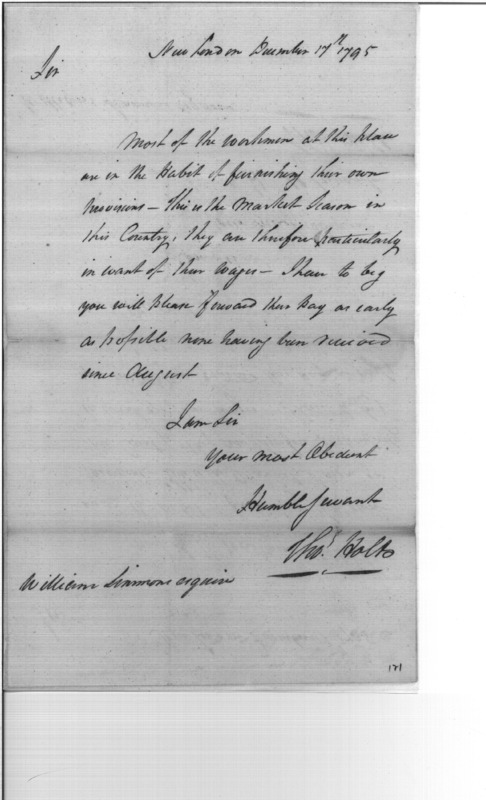 New London December 17th 1795
Sir
Most of the workmen at this place
are in the Habit of furnishing their own
Provisions – this is the Market Season in
this Country, they are therefore particularly
in want of their wages – I have to beg
you will please forward their Pay as early
as possible none having been received
since August
I am Sir
Your most Obedient
Humble Servant
Tho.s Holts
William Simmons esquire
121